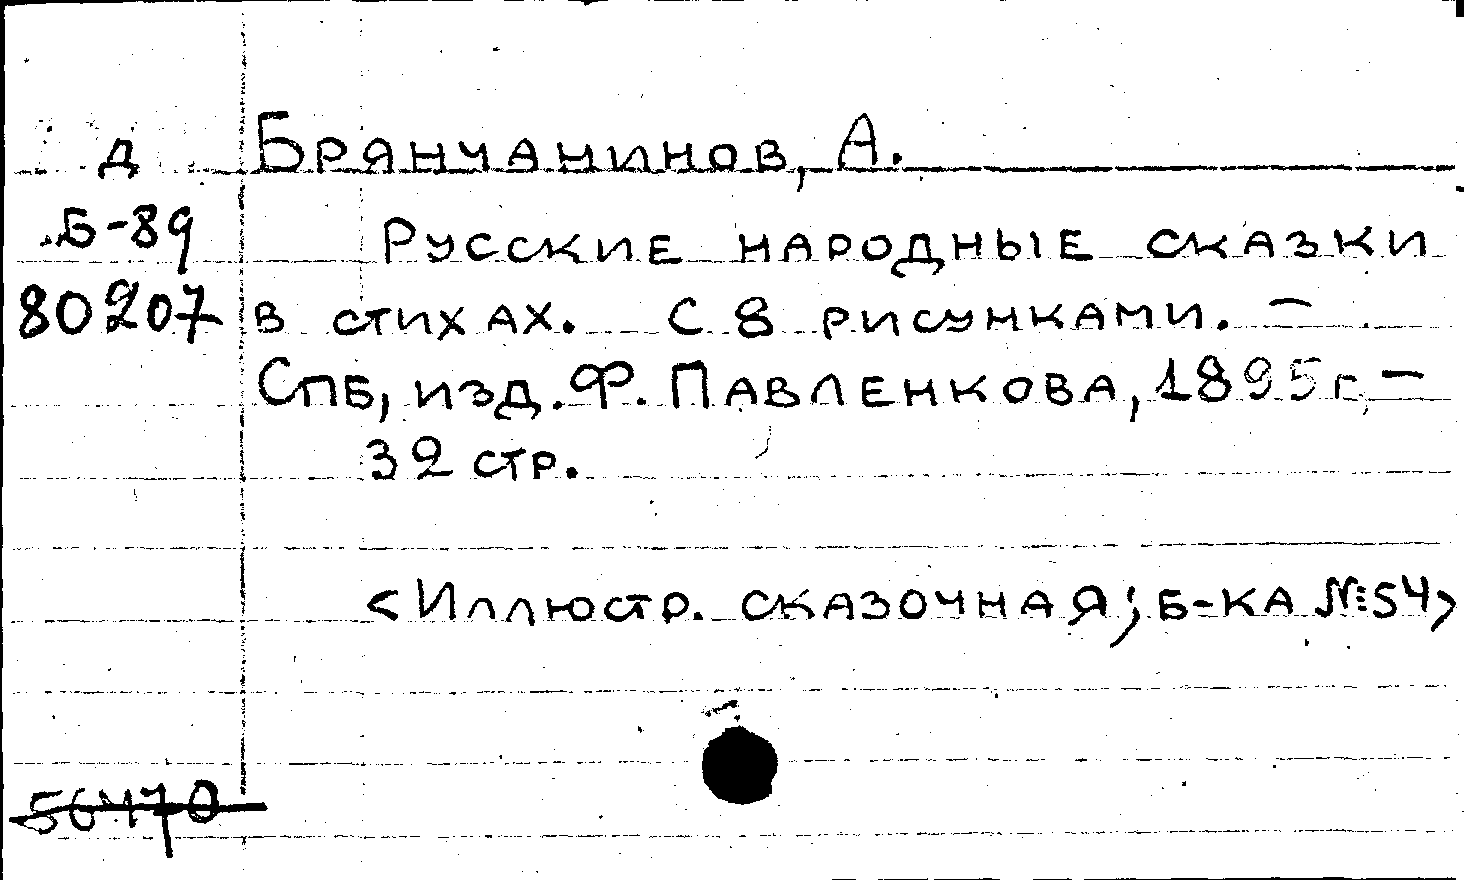 Д Брянчанинов, А.
Б-89 Русские народные сказки
80207 в стихах. С 8 рисунками. –
СПБ, изд. Ф. Павленкова, 1895 г, –
32 стр.
<Иллюстр. сказочная; б-ка №54>